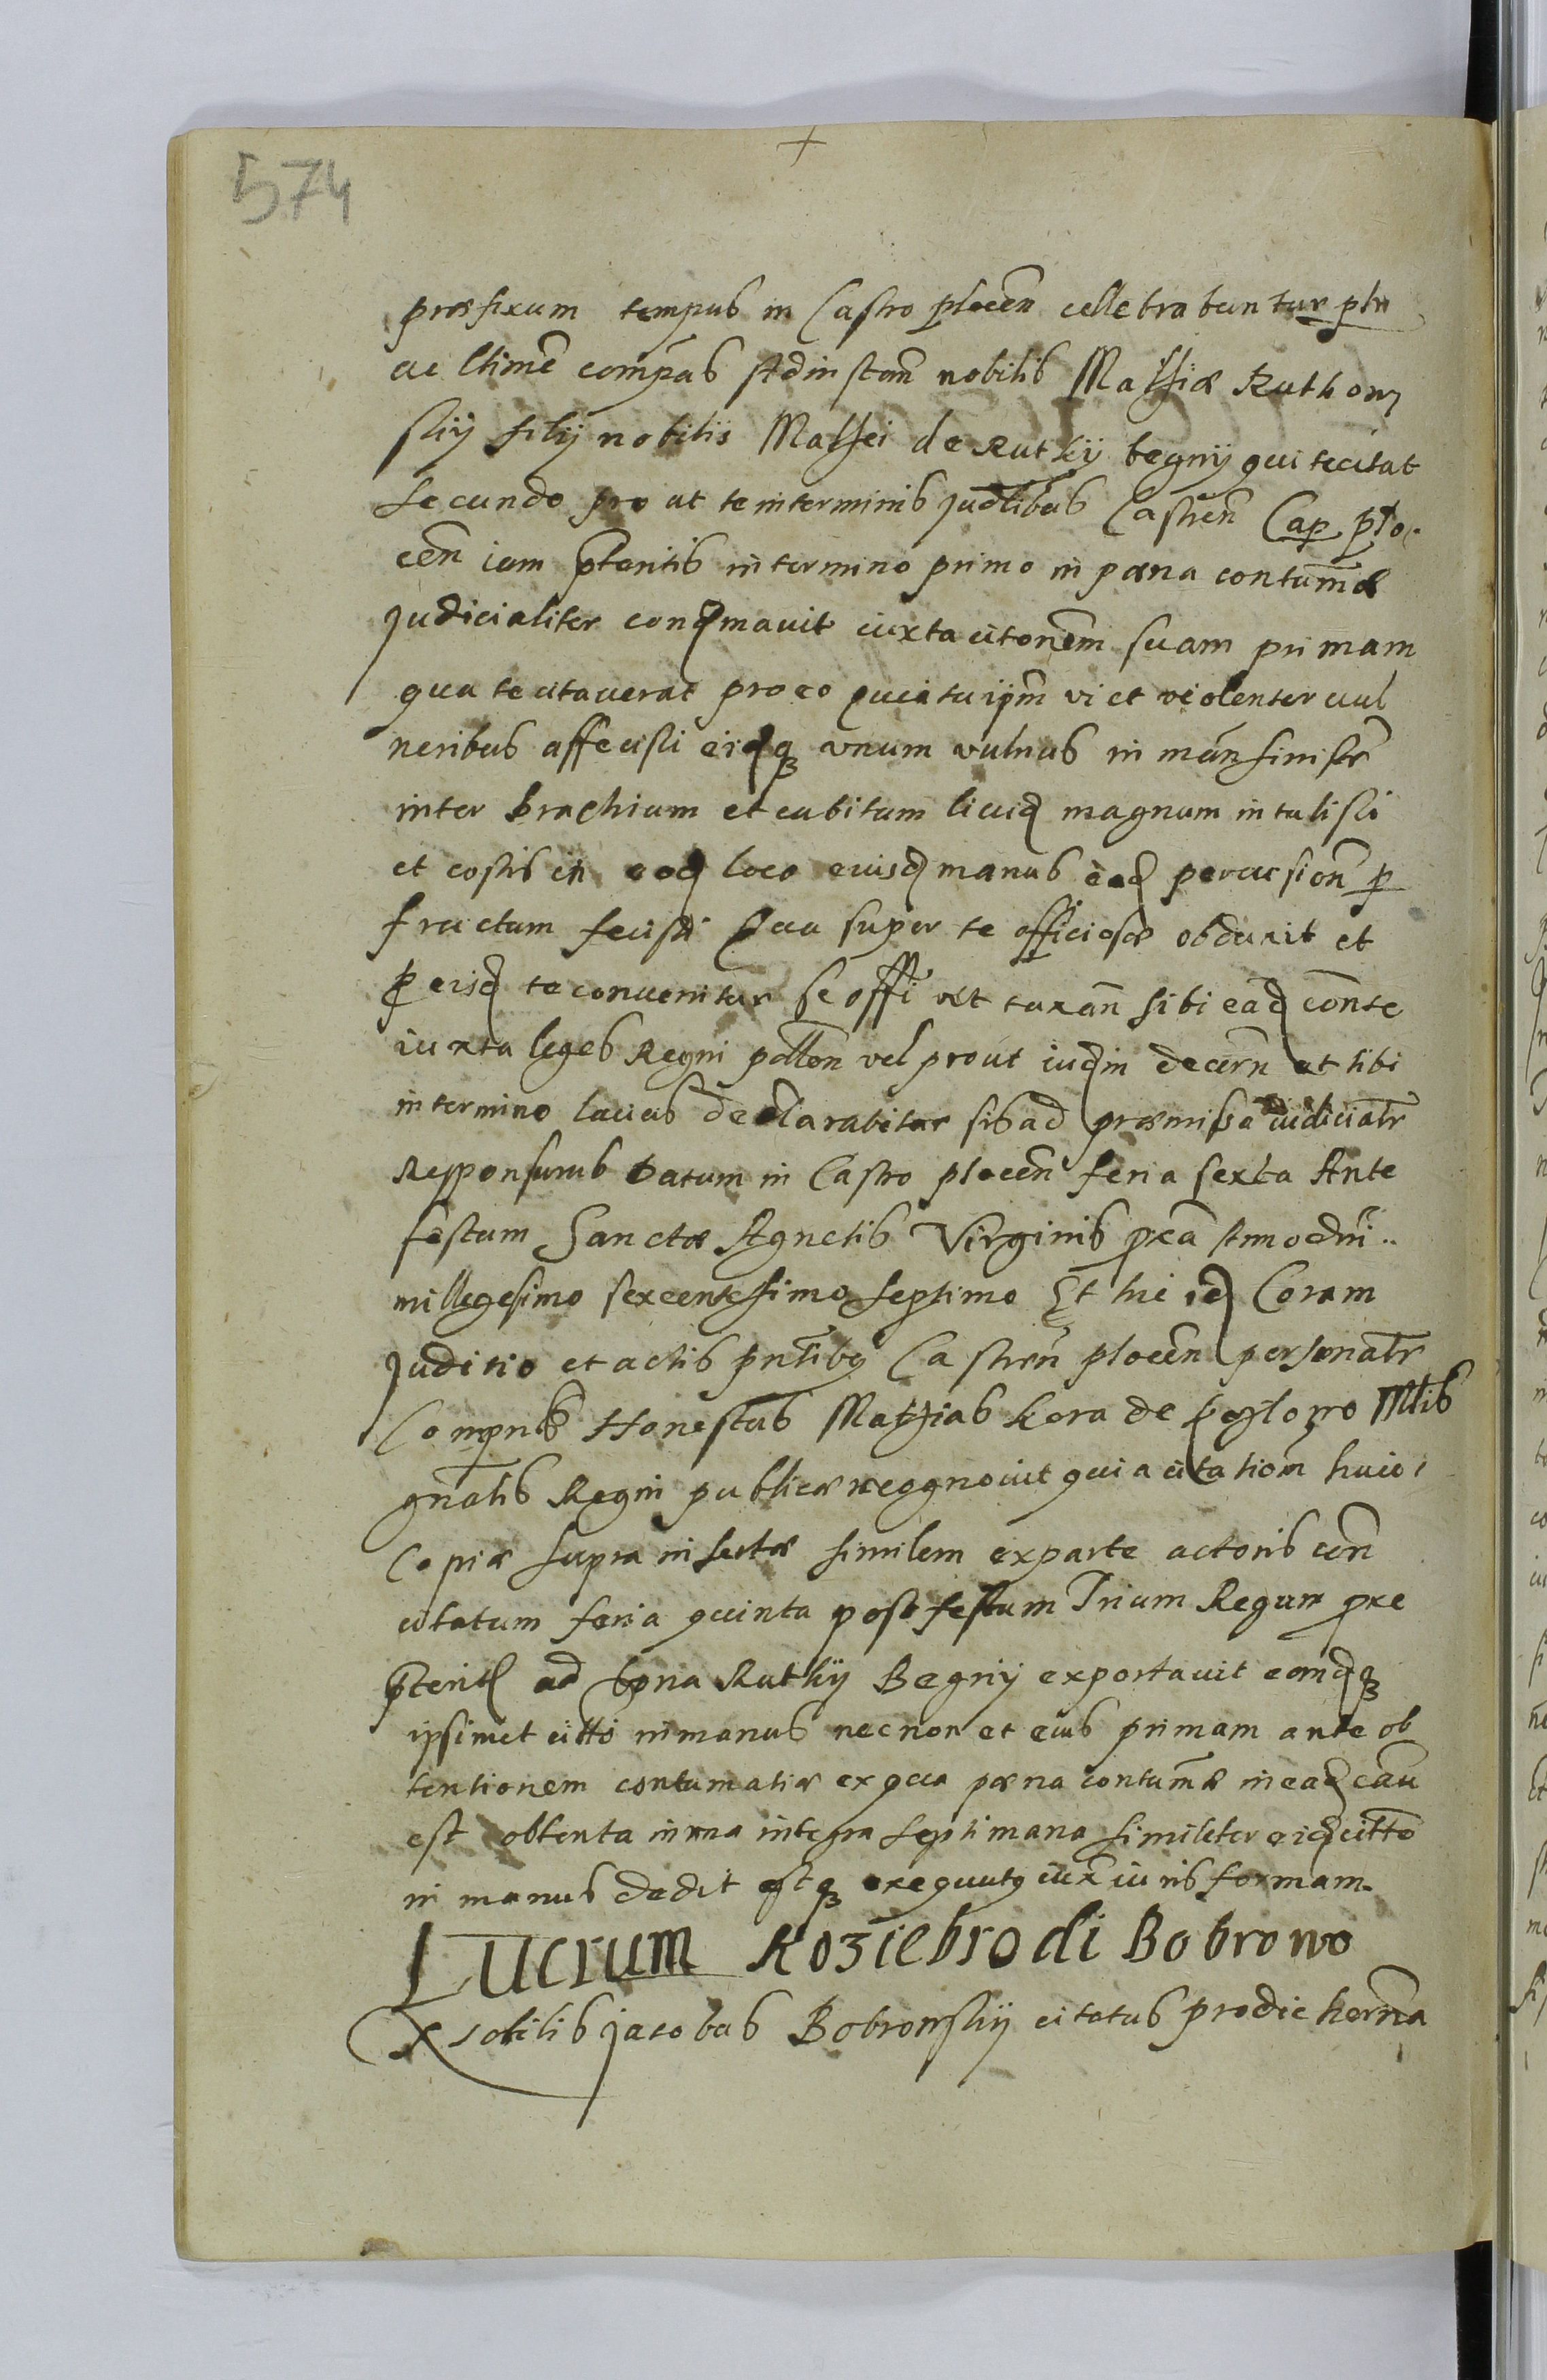 574
præfixum tempus in Castro plocen̄ cellebrabuntur
ac ltime compas Ad instan̄ nobilis Mathiæ Rutkow
skij filij nobilis Mathei de Rutkij begnij qui te citat
secundo pro ut te in terminis Judlibus Castren̄ Cap plo
cen̄ iam ptentis in termino primo in pœna contum̄æ
Judicialiter condmauit iuxta citonem suam primam
qua te citauerat pro eo quia tu ipm̄ vi et violenter vul
neribus affecisti eidq vnum vulnus in man̄ sinistr̄
inter brachium et cubitum liuid magnum intulisti
et costis in eod loco eiusd manus ead percusion̄ p
fractum fecisti Qua super te officiosæ obduxit et
p eisd te conuenitur se offr̄ vet taxan̄ sibi ead con̄te
iuxta leges Regni pollon̄ vel prout iudm decern̄ et tibi
in termino lacius declarabitur sis ad præmissa iudiciatr̄
Responsurus Datum in Castro plocen̄ feria sexta Ante
festum Sanctæ Agnetis Virginis pxa Anno dni
millegesimo sexcentessimo septimo Et hic id Coram
Juditio et actis pn̄tibq Castren̄ plocen̄ personatr̄
Comprns Honestus Mathias kora de Mtis
gn̄atis Regni publicæ recognouit quia citation̄ huic
Copiæ supra insertæ similem ex parte actoris con̄
citatum feria quinta post festum Trium Regum pxe
pterit ad bona Rutkij Begnij exportauit eamdq
ipsimet citto in manus nec non et eius primam ante ob
tentionem contumatiæ ex qua pœna contum̄æ in ead cau
est obtenta in vna integra septimana similiter eid citto
in manus dedit estq exequutq iux iuris formam
Lucrum Koziebrodi Bobrowo
Nobilis Jacobus Bobrowskij citatus pro die hern̄a